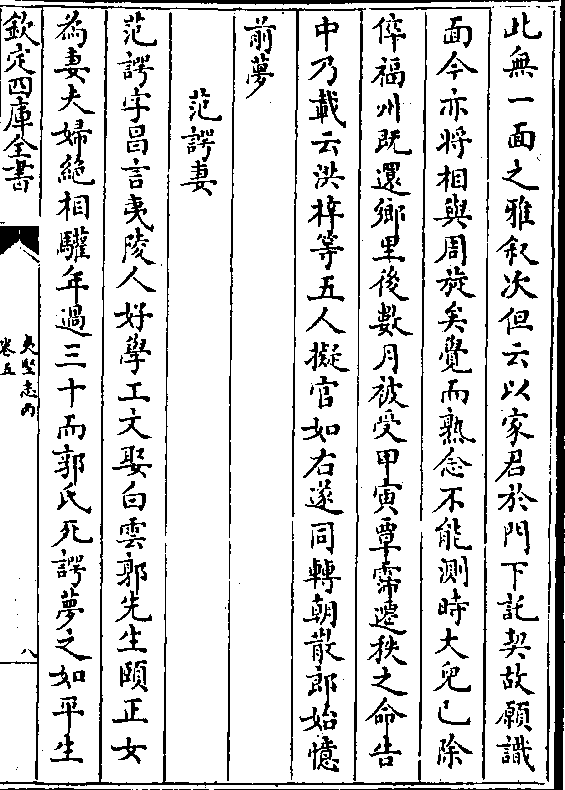 此無一面之雅叙次但云以家君於門下託契故願識
面今亦将相與周旋矣覺而熟念不能測時大兒已除
倅福州既還鄉里後數月被受甲寅覃霈遷秩之命告
中乃載云洪梓等五人擬官如右遂同轉朝散郎始憶
前夢
范諤妻
范諤字昌言夷陵人好學工文娶白雲郭先生頤正女
為妻夫婦絶相驩年過三十而郭氏死諤夢之如平生
欽定四庫全書
夷堅志丙
卷五
八